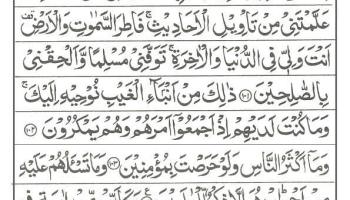 عَلَّمْتَنِي مِنْ تَأْوِيلِ الْأَحَادِيثِ ۚ فَاطِرَ السَّمٰوٰتِ وَالْأَرْضِ
أَنْتَ وَلِيّٖ فِي الدُّنْيَا وَالْاٰخِرَةِ ۚ تَوَفَّنِي مُسْلِمًا وَّأَلْحِقْنِي
بِالصّٰلِحِيْنَ ﴿١٠١﴾ ذٰلِكَ مِنْ أَنْبَآءِ الْغَيْبِ نُوْحِيْهِ إِلَيْكَ ۚ
وَمَا كُنْتَ لَدَيْهِمْ إِذْ أَجْمَعُوْٓا أَمْرَهُمْ وَهُمْ يَمْكُرُوْنَ ﴿١٠٢﴾
وَمَآ أَكْثَرُ النَّاسِ وَلَوْ حَرَصْتَ بِمُؤْمِنِيْنَ ﴿١٠٣﴾ وَمَا تَسْـَٔلُهُمْ عَلَيْهِ